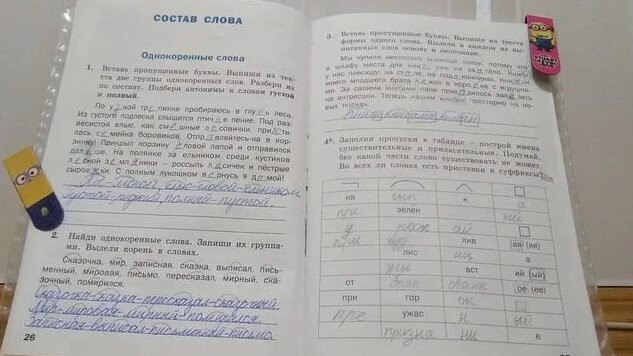 СОСТАВ СЛОВА
Однокоренные слова
1. Вставь пропущенные буквы. Выпиши из тек-
ста две группы однокоренных слов. Разбери их
по составу. Подбери антонимы к словам густой
и полный.
По у кой тр пинке пробираюсь в глу ь леса.
Из густого подлеска слышится птич е пение. Под раз-
весистой елью, как см шные л совички, при ти-
лась с мейка боровиков. Отпр вляйтесь-ка в кор-
зинку! Прикрыл корзинку еловой лапой и отправился
дал ше. На полянке за ельником среди кустиков
л сной з мл ники – россыпь л сичек и пёстрые
сырое ки. С полным лукошком в рнусь я д мой!
густой-редкий, полный-пустой.
2. Найди однокоренные слова. Запиши их группа-
ми. Выдели корень в словах.
Сказочка, мир, записная, сказка, выписал, пись-
менный, мировая, письмо, пересказал, мирный, ска-
зочный, помирился.
Сказочка-сказка-пересказал-сказочный.
Мир-мировая-мирный-помирился.
Записная-выписал-письменный-письмо.
26
3. Вставь пропущенные буквы. Выпиши из текста
формы одного слова. Выдели в каждом из вы-
писанных слов основу и окончание.
Мы купили несколько книжных полок, потому что
в шкафу места для книг уже не хватало. Книги
у нас повсюду: на столе, на подоконниках, на
моего младшего брата лежат в коро ке с игрушка-
ми. За своими книгами папе пришлось залезать
на антресоли. Теперь нашим книгам просторно на но-
вых полках.
4*. Заполни пропуски в таблице – построй имена
существительные и прилагательные. Подумай,
без какой части слово существовать не может.
Во всех ли словах есть приставки и суффиксы?
на сып к а
при зелён ый
у рож ай
лив ая (яя)
лис иц а
уш аст ий ый
от ое (ее)
при гор ок
пре ужас н ый
ни е